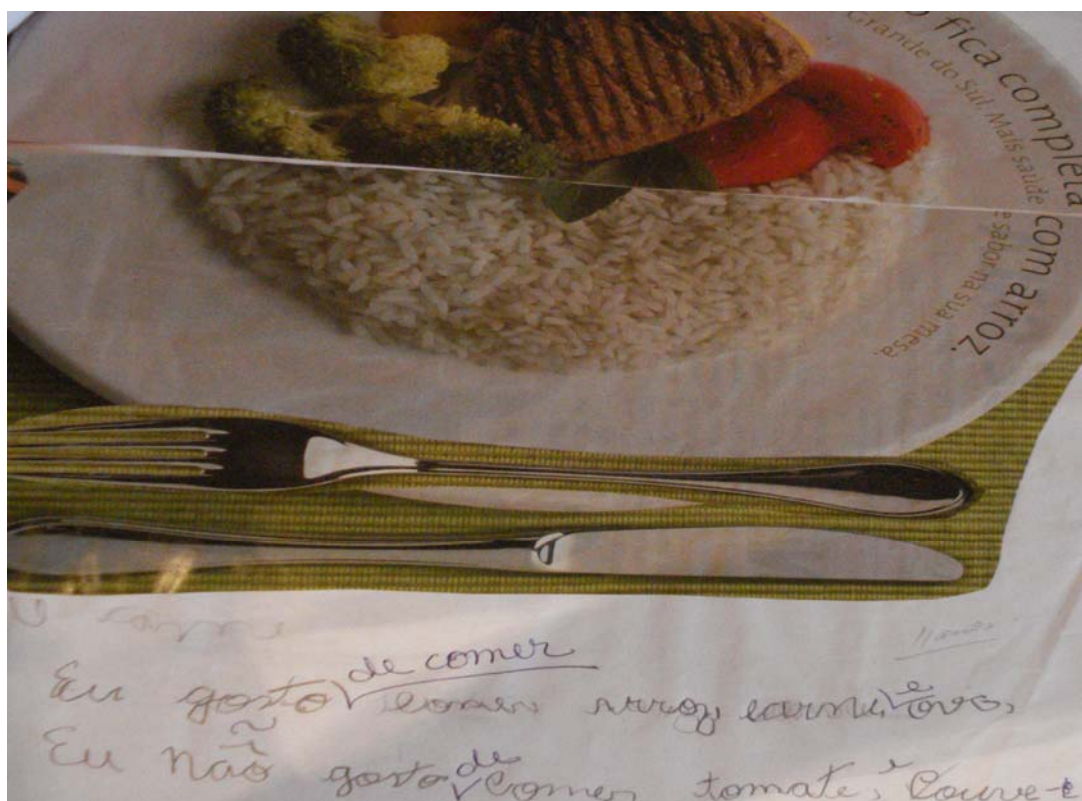 o fica completa com arroz.
Grande do Sul. Mais saúde e sabor na sua mesa.
11 anos
de comer
Eu gosto comer arroz, carne, e ovo,
Eu não gosto de comer tomate, e couve-e